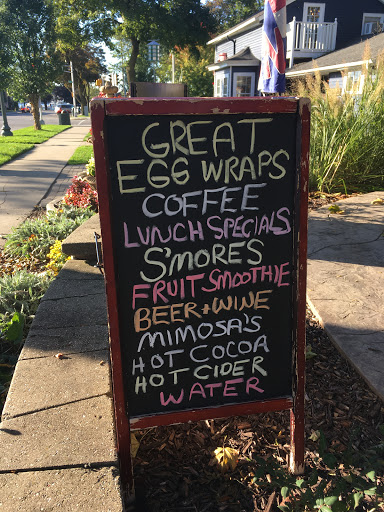 GREAT
EGG WRAPS
COFFEE
LUNCH SPECIALS
S'MORES
FRUIT SMOOTHIE
BEER + WINE
MIMOSA'S
HOT COCOA
HOT CIDER
WATER